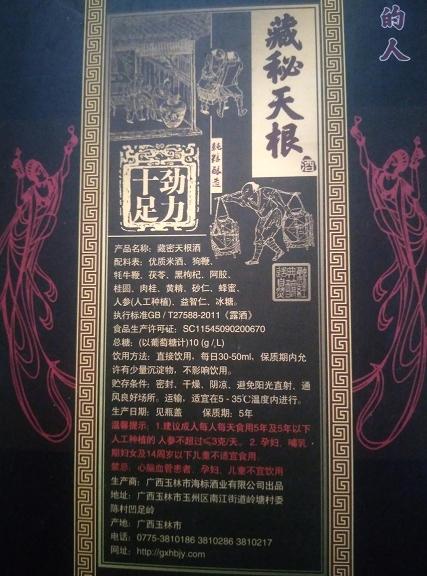 的人
藏秘天根
酒
純粹釀造
十足
劲力
产品名称：藏密天根酒
配料表：优质米酒、狗鞭、
牦牛鞭、茯苓、黑枸杞、阿胶、
桂圆、肉桂、黄精、砂仁、蜂蜜、
人参(人工种植)、益智仁、冰糖。
执行标准GB / T27588-2011《露酒》
食品生产许可证：SC11545090200670
总糖：(以葡萄糖计)10 (g /L)
饮用方法：直接饮用，每日30-50ml、保质期内允
许有少量沉淀物，不影响饮用。
贮存条件：密封、干燥、阴凉、避免阳光直射、通
风良好场所。运输，适宜在5 - 35℃温度内进行。
生产日期：见瓶盖 保质期：5年
温馨提示：1.建议成人每人每天食用5年及5年以下
人工种植的 人参不超过≤3克/天。 2. 孕妇、哺乳
期妇女及14周岁以下儿童不适宜食用。
禁忌：心脑血管患者、孕妇、儿童不宜饮用
生产商：广西玉林市海标酒业有限公司出品
地址：广西玉林市玉州区南江街道岭塘村委
陈村凹足岭
产地：广西玉林市
电话：0775-3810186 3810286 3810217
网址：http://gxhbjy.com